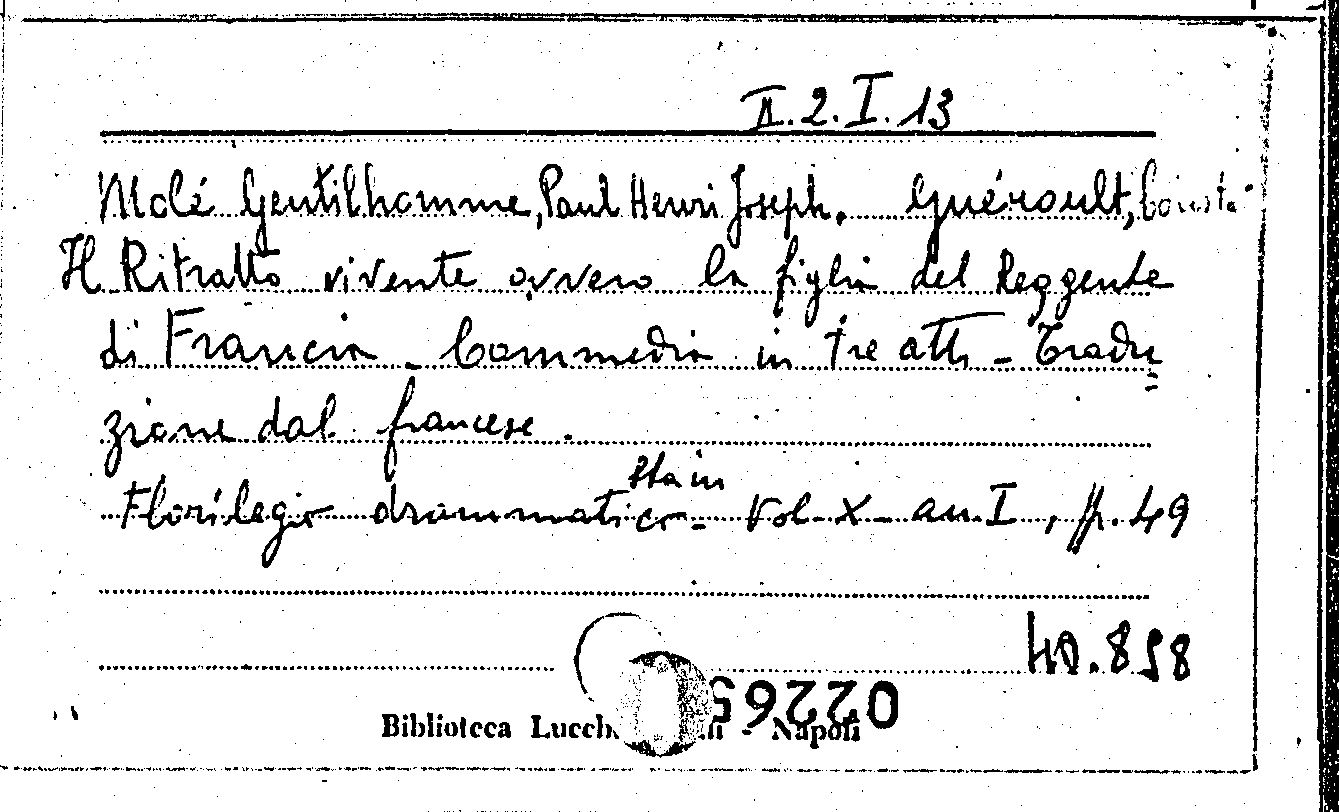 II.2.I.13
Molé Gentilhomme, Paul Henri Joseph. Guéroult, Const.
Il Ritratto vivente ovvero la figlia del Reggente
di Francia - Commedia in tre atti - Tradu=
zione dal francese.
sta in
Florilegio drammatico - Vol. X - an. I, p. 49
40.858
02265
Biblioteca - Napoli